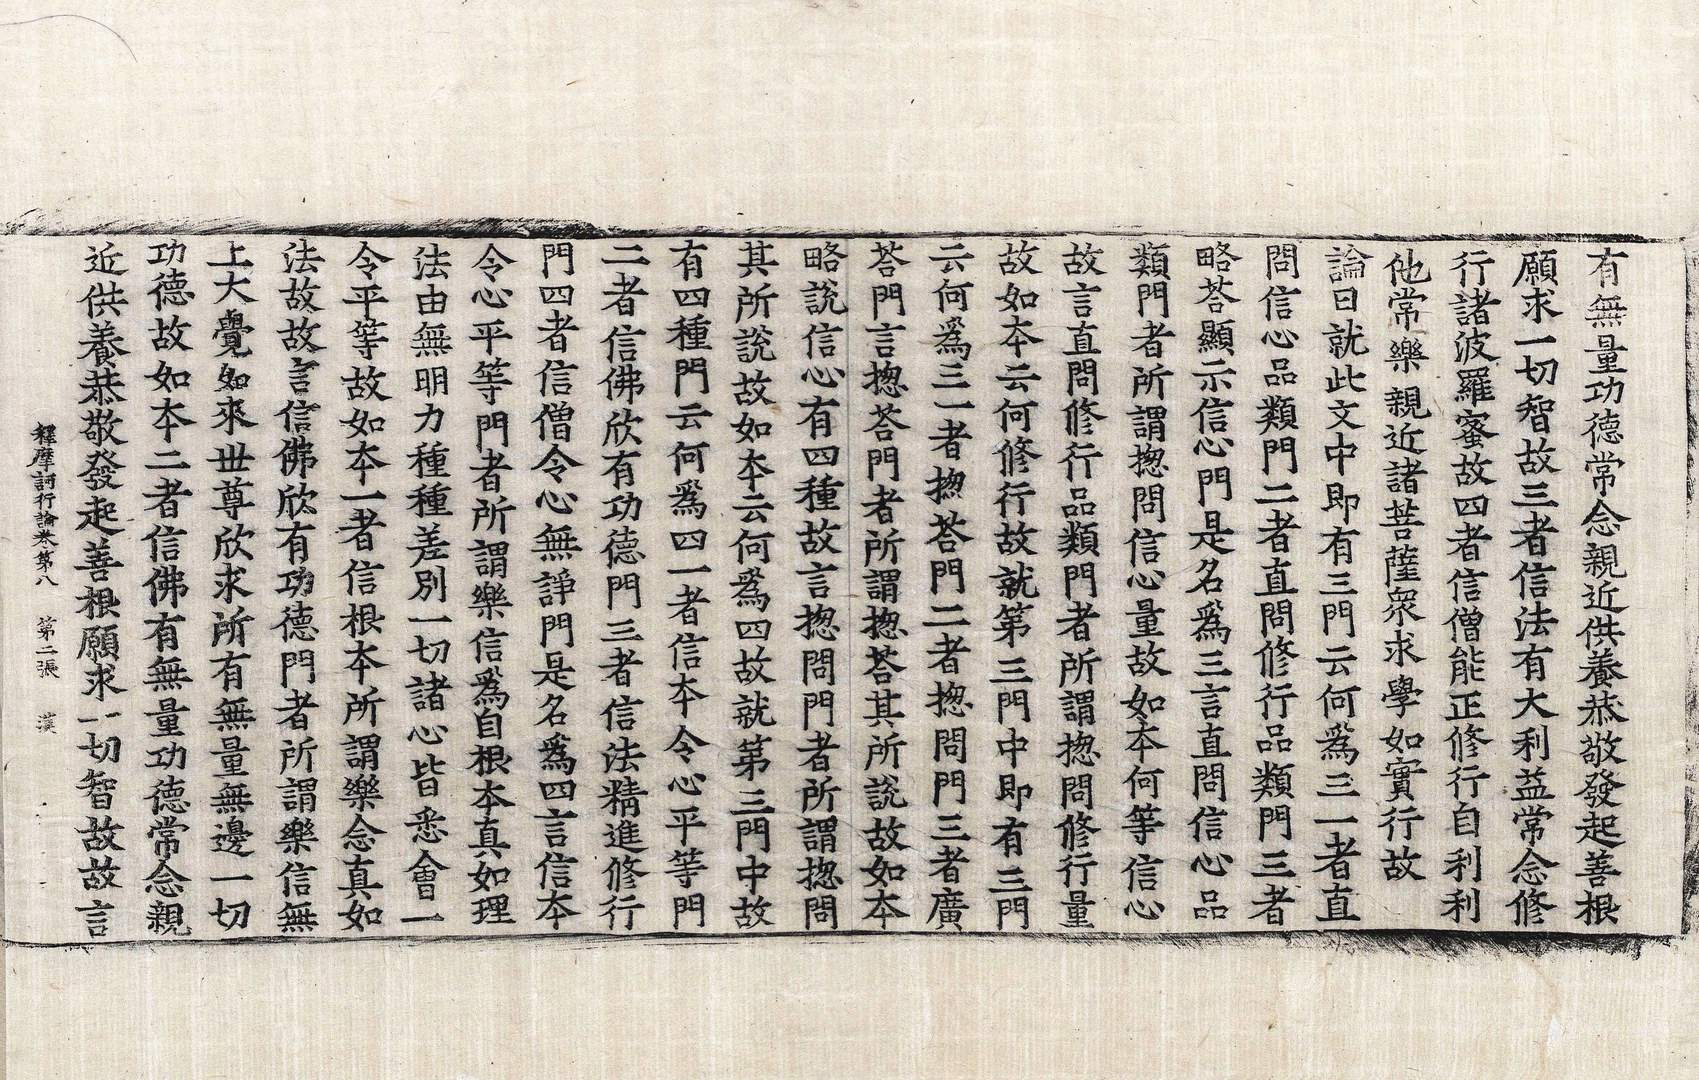 有無量功德常念親近供養恭敬發起善根
願求一切智故三者信法有大利益常念修
行諸波羅蜜故四者信僧能正修行自利利
他常樂親近諸菩薩衆求學如實行故
論曰就此文中即有三門云何爲三一者直
問信心品類門二者直問修行品類門三者
略荅顯示信心門是名爲三言直問信心品
類門者所謂揔問信心量故如本何等信心
故言直問修行品類門者所謂揔問修行量
故如本云何修行故就第三門中即有三門
云何爲三一者揔荅門二者揔問門三者廣
荅門言揔荅門者所謂揔荅其所說故如本
略說信心有四種故言揔問門者所謂揔問
其所說故如本云何爲四故就第三門中故
有四種門云何爲四一者信本令心平等門
二者信佛欣有功德門三者信法精進修行
門四者信僧令心無諍門是名爲四言信本
令心平等門者所謂樂信爲自根本真如理
法由無明力種種差別一切諸心皆悉會一
令平等故如本一者信根本所謂樂念真如
法故故言信佛欣有功德門者所謂樂信無
上大覺如來世尊欣求所有無量無邊一切
功德故如本二者信佛有無量功德常念親
近供養恭敬發起善根願求一切智故故言
釋摩訶衍論卷第八 第二張 漢